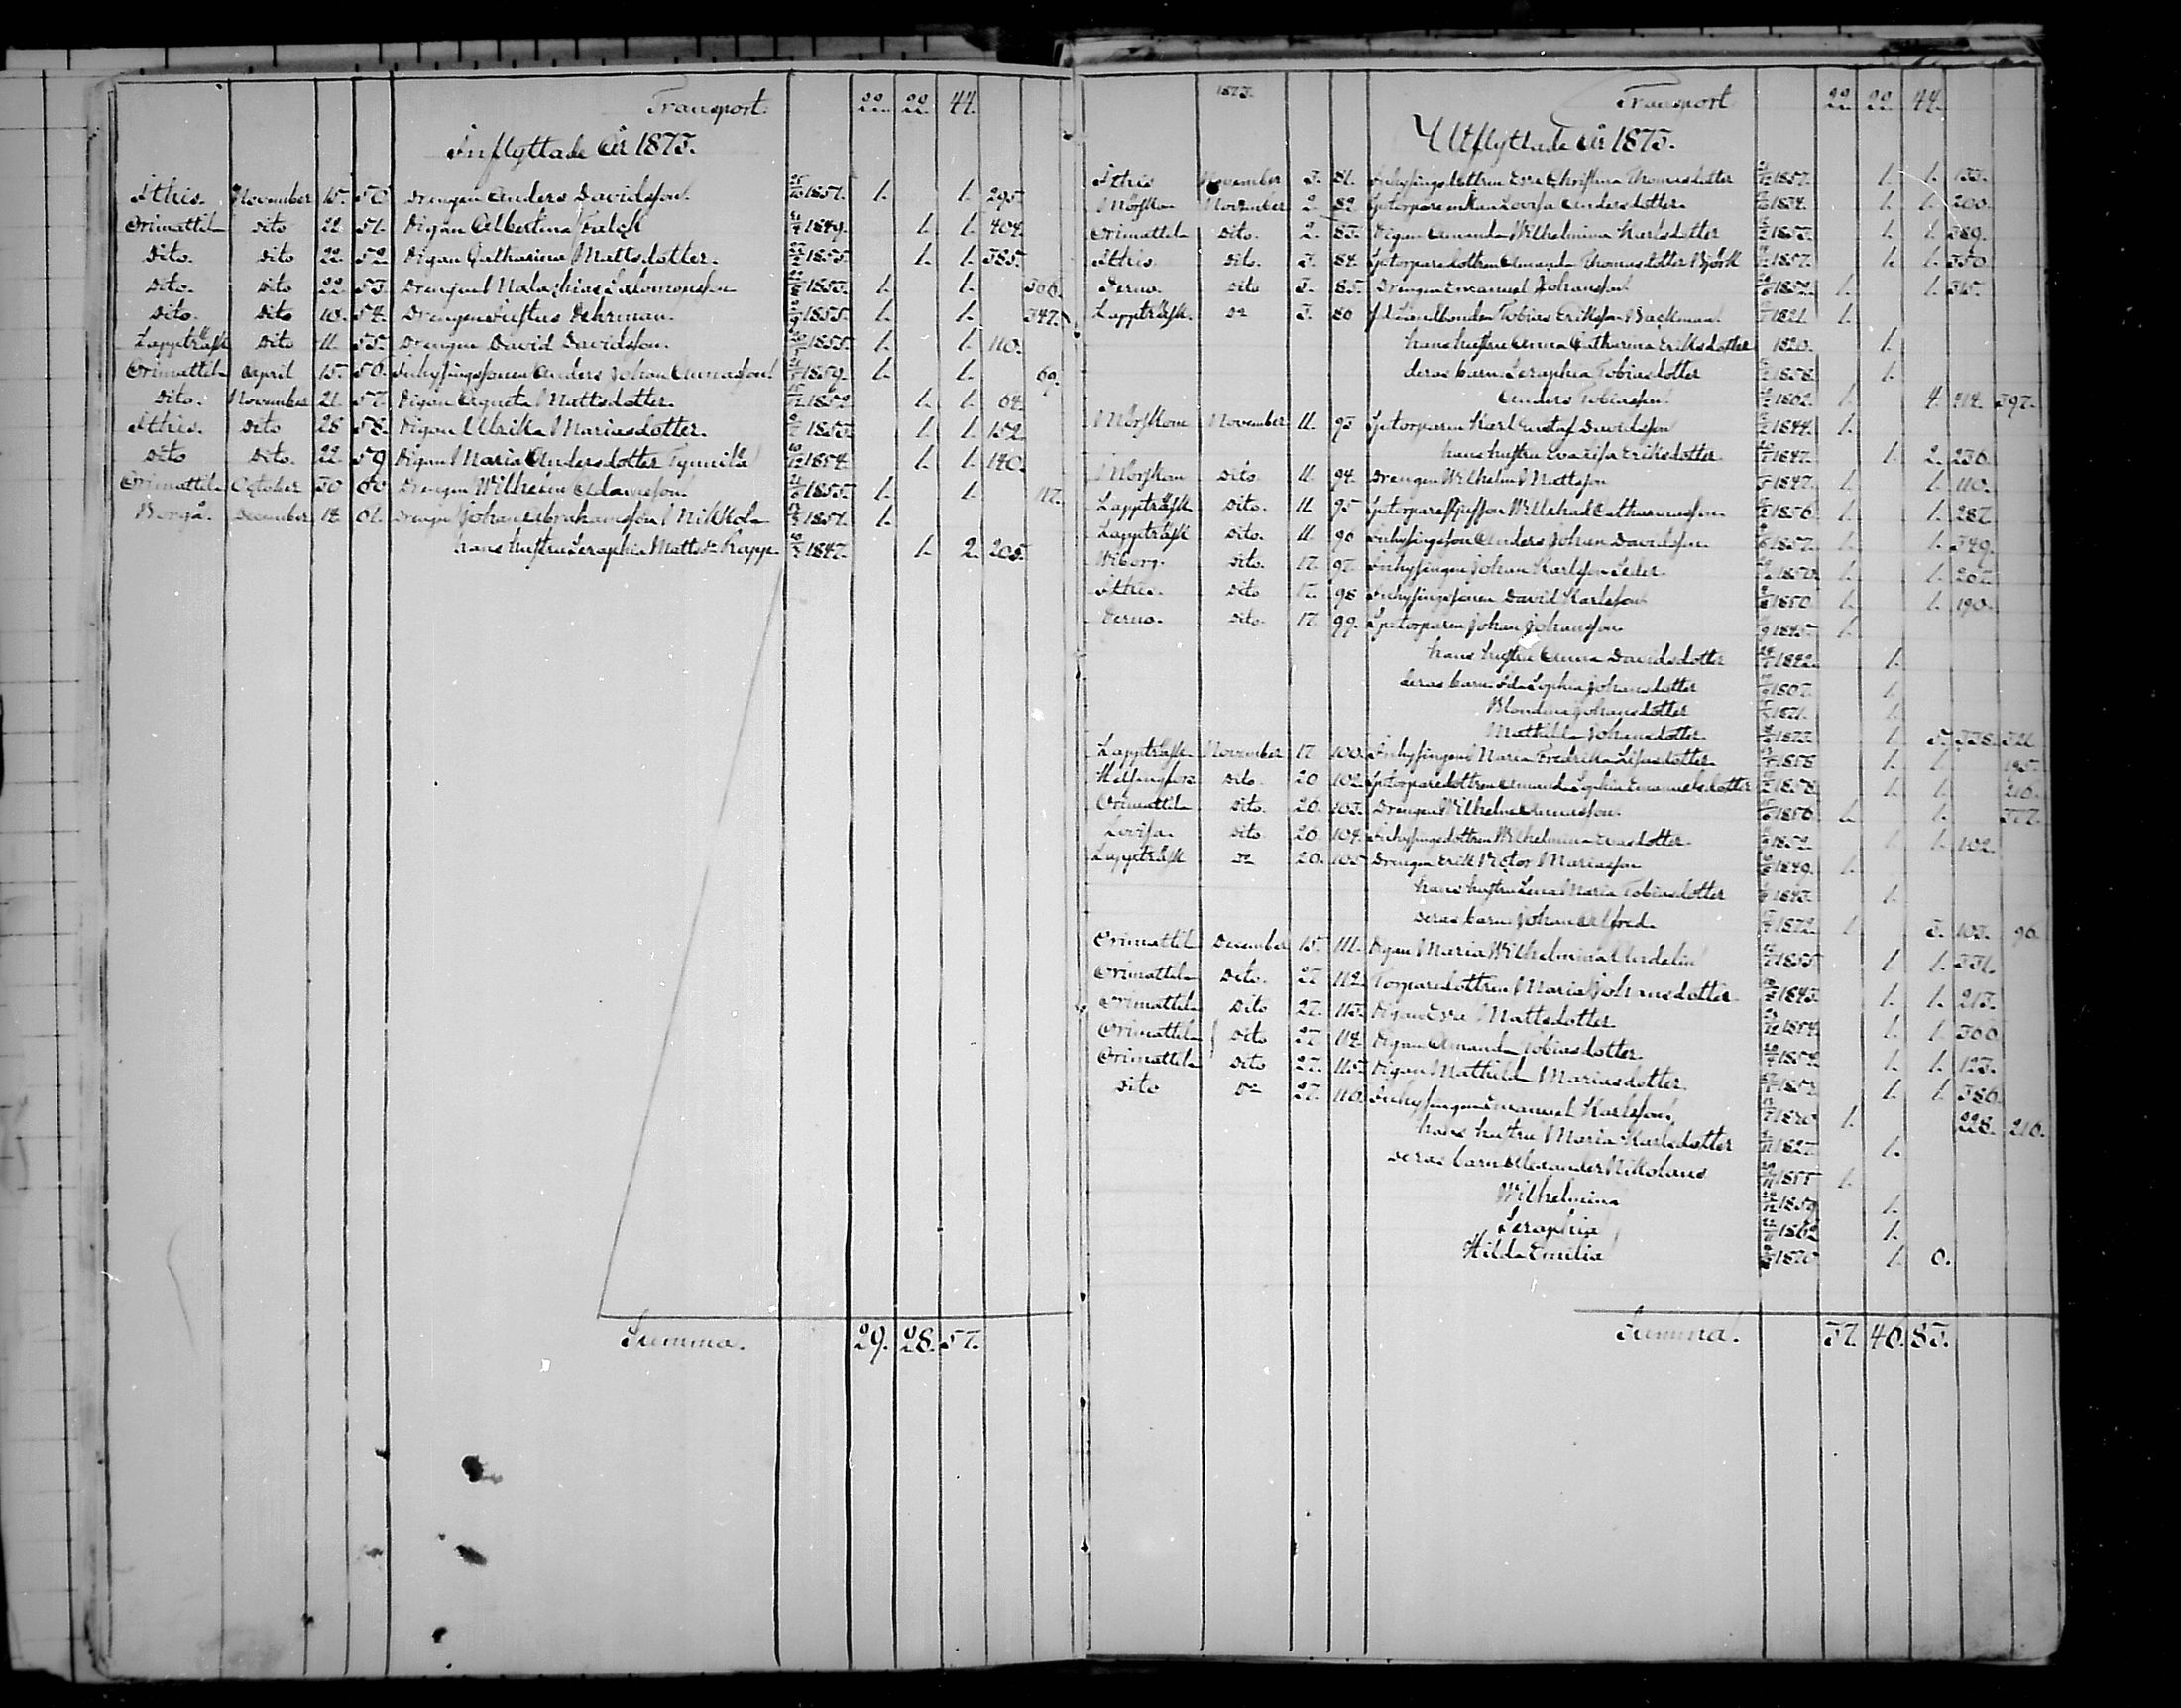 Transport. 22. 22. 44.
Inflyttade År 1873.
Ithis. November 15. 50 Drengen Anders Davidsson 1851. 1. 1. 295.
Orimattila dito 22. 51. Pigan Albertina Falck 1849. 1. 1. 404.
Dito. dito 22. 52. Pigan Catharina Mattsdotter. 1855. 1. 1. 385.
Dito. dito 22. 53. Drengen Malachias Salomonsson 1853. 1. 1. 306.
Dito. dito 10. 54. Drengen Justus Öehrman. 1855. 1. 1. 347.
Lappträsk dito 11. 55. Drengen David Davidsson. 1855. 1. 1. 110.
Orimattila April 15. 56. Inhysingssonen Anders Johan Annasson 1859. 1. 1. 69.
Dito. November 21. 57. Pigan Agneta Mattsdotter. 1852. 1. 1. 64.
Ithis. dito 28 58. Pigan Ulrika Mariasdotter. 1853. 1. 1. 152.
Dito dito. 22. 59 Pigan Maria Andersdotter 1854. 1. 1. 140.
Orimattila October 30 60 Drengen Wilhelm Adamsson 1855. 1. 1. 117.
Borgå. December 14. 61. Drengen Johan Abrahamsson Nikkola 1851. 1.
hans hustru Seraphia Mattsdr Kappe 1847. 1. 2. 205.
Summa. 29. 28. 57.
1873. Transport 22. 22. 44.
Utflyttade År 1873.
Ithis November 3. 81. Inhysingsdottren Eva Christina Thomasdotter 1857. 1. 1. 133.
Mörskom November 2. 82 Sptorpareenkan Lovisa Andersdotter 1834. 1. 1. 200.
Orimattila Dito. 2. 83. Pigan Amanda Wilhelmina Karlsdotter 1853. 1. 1. 389.
Ithis Dito. 3. 84. Sptorparedottren Amanda Thomasdotter Björk 1857. 1. 1. 350
Perno. Dito 3. 85. Drengen Emanuel Johansson 1852. 1. 1. 315.
Lappträsk. Do 3. 86 f.d. Landbonden Tobias Eriksson Backman 1821. 1.
hans hustru Anna Catharina Eriksdotter 1820. 1.
deras barn Seraphia Tobiasdotter 1858. 1.
Anders Tobiasson 1862. 1. 4. 414. 397.
Mörskom November 11. 93 Sptorparen Karl Gustaf Davidsson 1844. 1.
hans hustru Eva Lisa Eriksdotter. 1847. 1. 2. 236.
Mörskom Dito 11. 94. Drengen Wilhelm Mattsson 1847. 1. 1. 110.
Lappträsk Dito. 11. 95 1856. 1. 1. 287.
Lappträsk Dito. 11. 96 Inhysingsson Anders Johan Davidsson 1857. 1. 1. 349.
Wiborg. Dito. 17. 97. Inhysingen Johan Karlsson Seder 1850. 1. 1. 207.
Ithis. Dito 17. 98 Inhysingssonen David Karlsson 1850. 1. 1. 190.
Perno. Dito. 17. 99. Sptorparen Johan Johansson 1845. 1.
hans hustru Anna Davidsdotter 1842. 1.
deras barn Ida Sophia Johansdotter 1867. 1.
Blondina Johansdotter 1871. 1.
Mathilda Johansdotter 1873. 1. 5. 338. 321
Lappträsk November 17 100. Inhysingen Maria Fredrika Lisasdotter 1858. 1. 1. 195.
Helsingfors Dito. 20 102. Sptorparedottren Amanda Sophia Emanuelsdotter 1858. 1. 1. 210.
Orimattila Dito. 20. 103. Drengen Wilhelm Annasson 1856. 1. 1. 377.
Lovisa. Dito 20. 104. Inhysingsdottren Wilhelmina Evasdotter 1852. 1. 1. 102.
Lappträsk Do 20. 105 Drengen Erik Victor Mariasson 1849. 1.
hans hustru Lena Maria Tobiasdotter 1843. 1.
deras barn Johan Alfred. 1872. 1. 3. 103. 96.
Orimattila December 15. 111. Pigan Maria Wilhelmina Andelin 1855 1. 1. 331.
Orimattila Dito. 27 112. Torparedottren Maria Johansdotter 1843. 1. 1. 213.
Orimattila Dito 27. 113. Pigan Eva Mattsdotter 1854. 1. 1. 300.
Orimattila Dito 27. 114 Pigan Amanda Tobiasdotter 1852. 1. 1. 123.
Orimattila Dito 27. 115. Pigan Mathilda Mariasdotter 1852. 1. 1. 386.
Dito Do 27. 116. Inhysingen Emanuel Karlsson 1820 1. 228. 210.
hans hustru Maria Karlsdotter 1827. 1.
deras barn Alexander Nikolaus 1855 1.
Wilhelmina 1859 1.
Seraphia 1862 1.
Hilda Emilia 1870 1. 6.
Summa. 37. 46. 83.